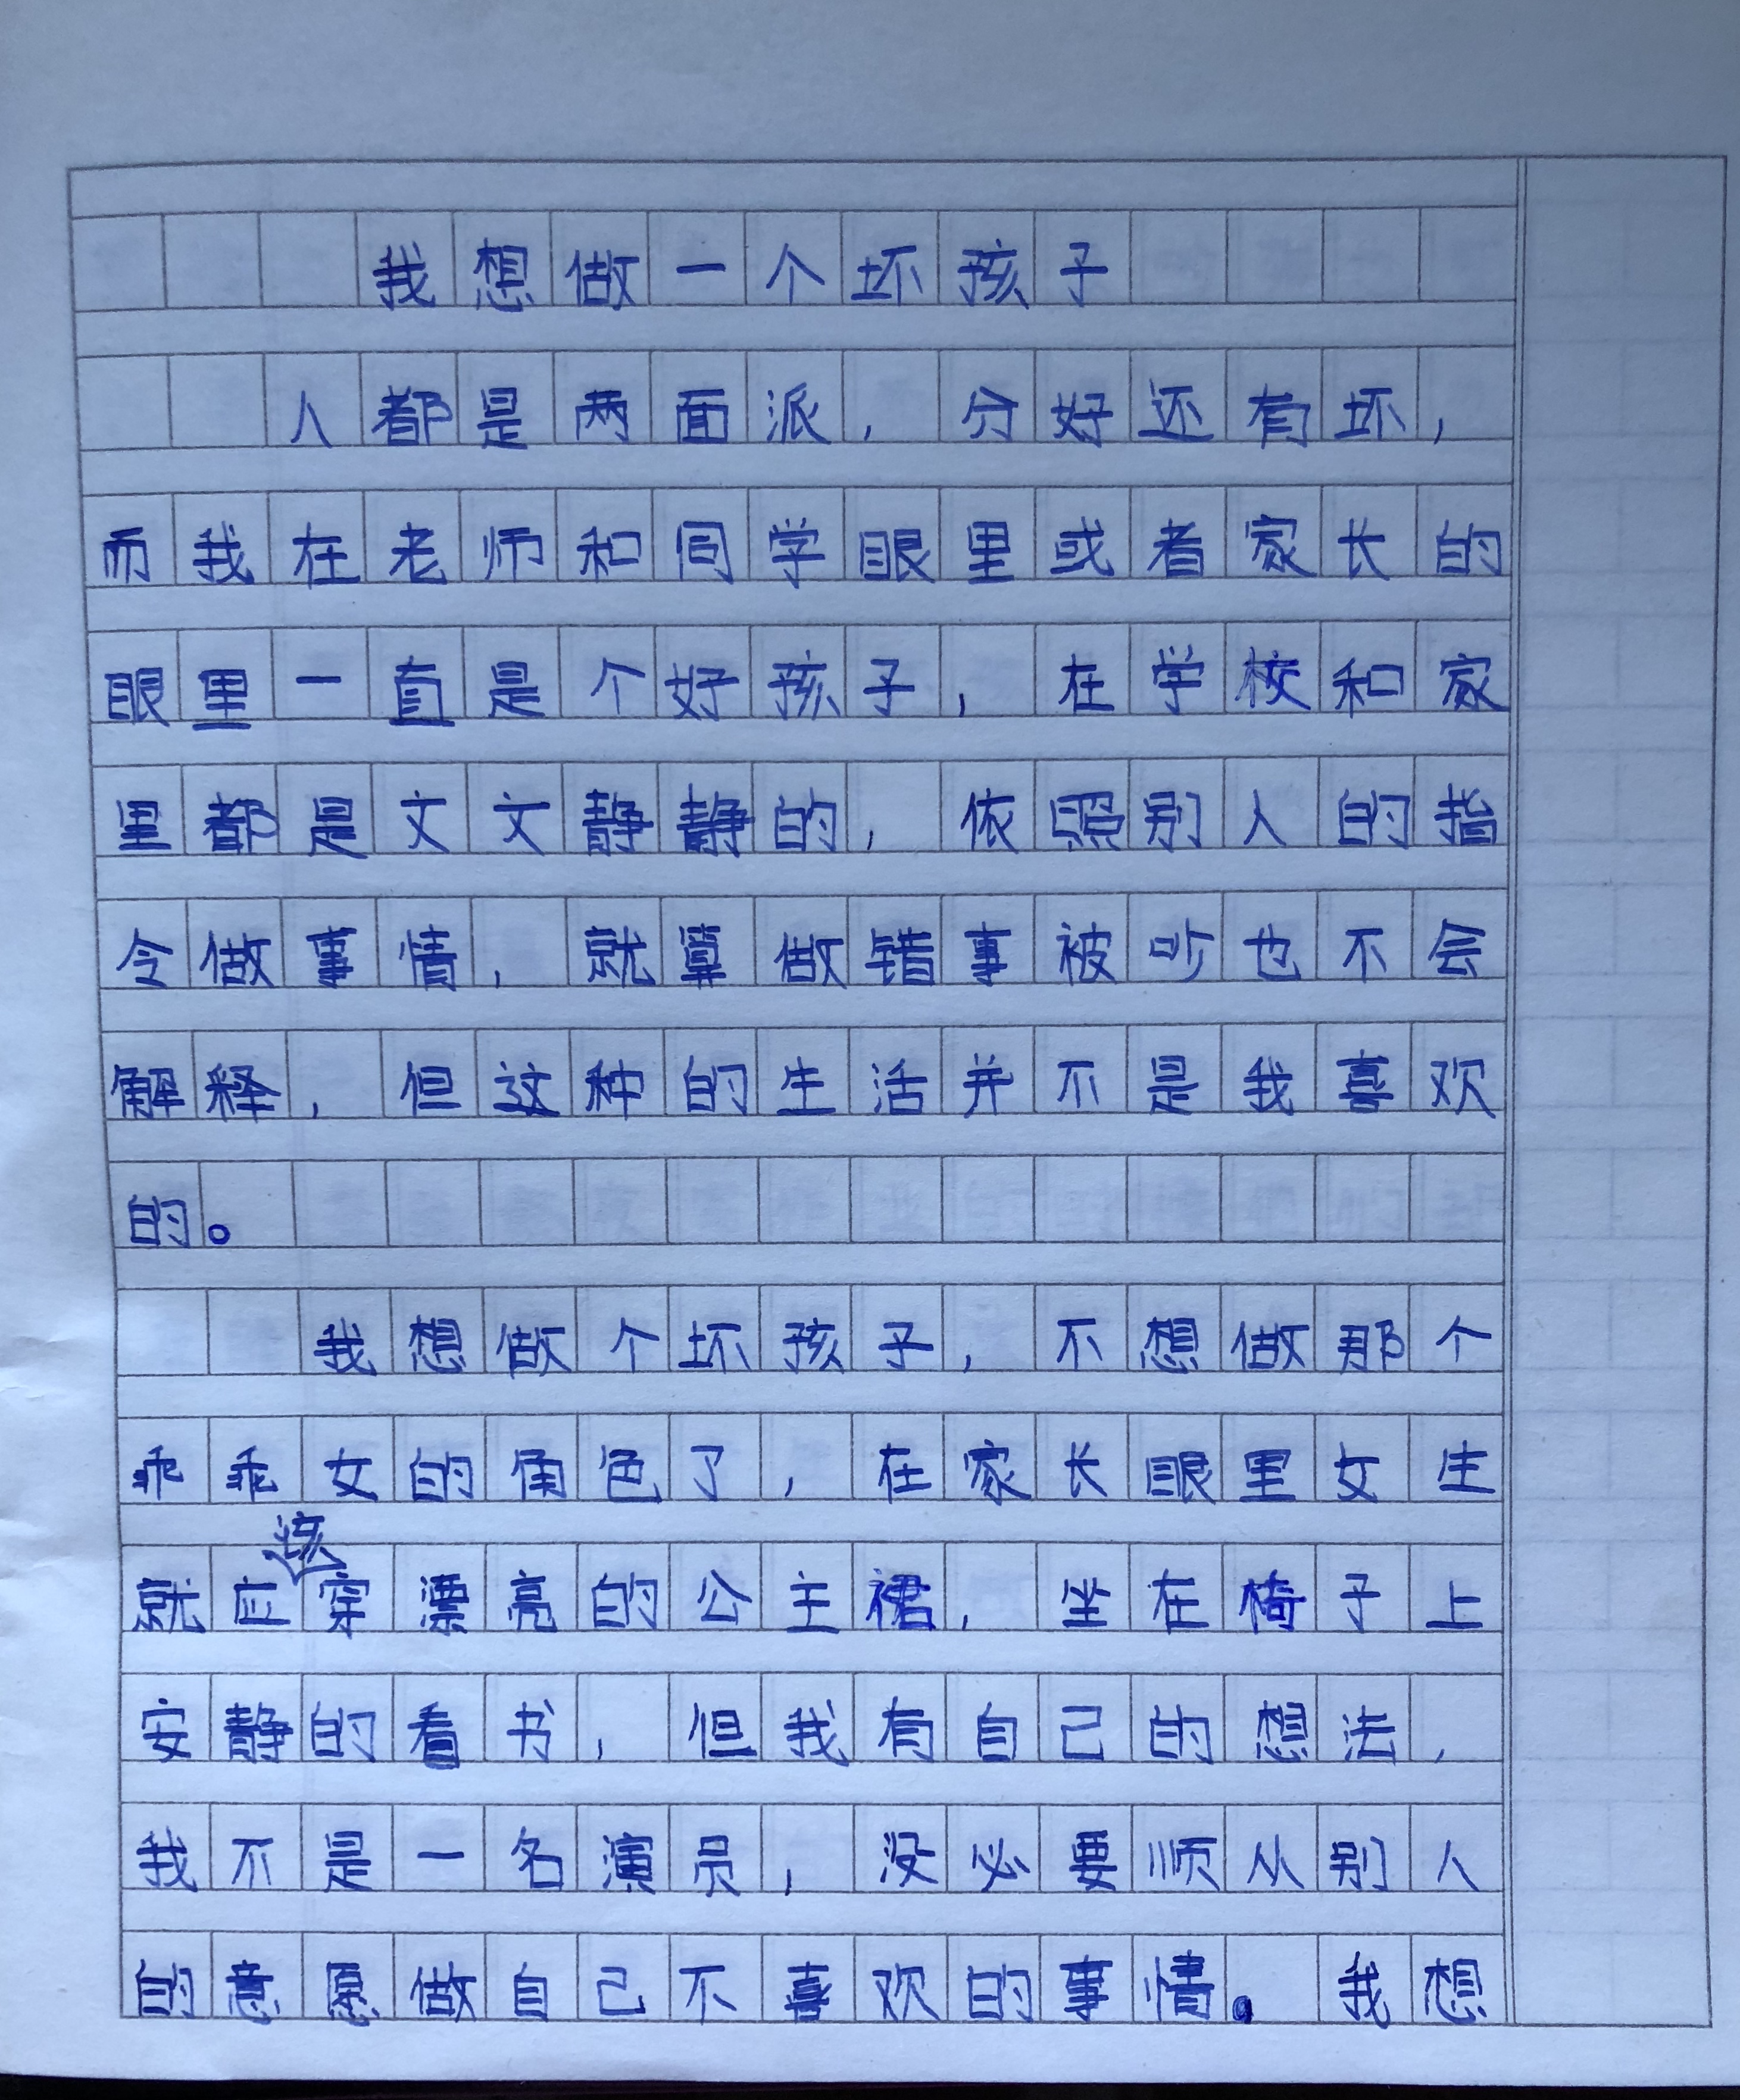 我想做一个坏孩子
人都是两面派，分好还有坏，
而我在老师和同学眼里或者家长的
眼里一直是个好孩子，在学校和家
里都是文文静静的，依照别人的指
令做事情，就算做错事被吵也不会
解释，但这种的生活并不是我喜欢
的。
我想做个坏孩子，不想做那个
乖乖女的角色了，在家长眼里女生
就应该穿漂亮的公主裙，坐在椅子上
安静的看书，但我有自己的想法，
我不是一名演员，没必要顺从别人
的意愿做自己不喜欢的事情。我想